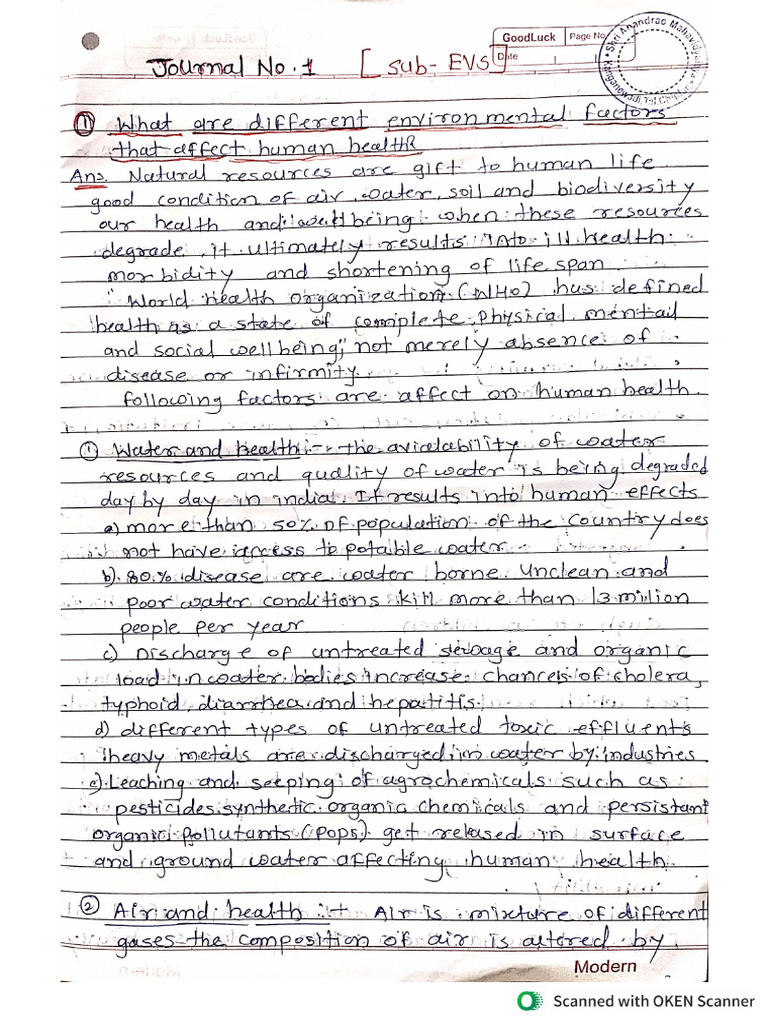 GoodLuck Page No.
Date
Shri Anandrao Mahavidyalaya
Journal No. 1 [Sub- EVS]
① What are different environmental factors
that affect human health
Ans. Natural resources are gift to human life
good condition of air, water, soil and biodiversity
our health and well being. when these resources
degrade, it ultimately results into ill health
morbidity and shortening of life span.
"World health organization (WHO) has defined
health as a state of complete, physical mentail
and social wellbeing," not merely absence of
disease or infirmity.
following factors are affect on human health.
① Water and health :- the avialability of water
resources and quality of water is being degraded
day by day in india. It results into human effects
a) more than 50% of population of the country does
not have access to potable water.
b) 80.% disease are water borne unclean and
poor water conditions kill more than 13 million
people per year
c) Discharge of untreated sewage and organic
load in water bodies increase chances of cholera,
typhoid, diarrhea and hepatitis.
d) different types of untreated toxic effluents
heavy metals are discharged in water by industries
e) Leaching and seeping of agrochemicals such as
pesticides, synthetic organic chemicals and persistant
organic pollutants (POPs) get released in surface
and ground water affecting human health.
② Air and health :- Air is mixture of different
gases the composition of air is altered by
Modern
Scanned with OKEN Scanner